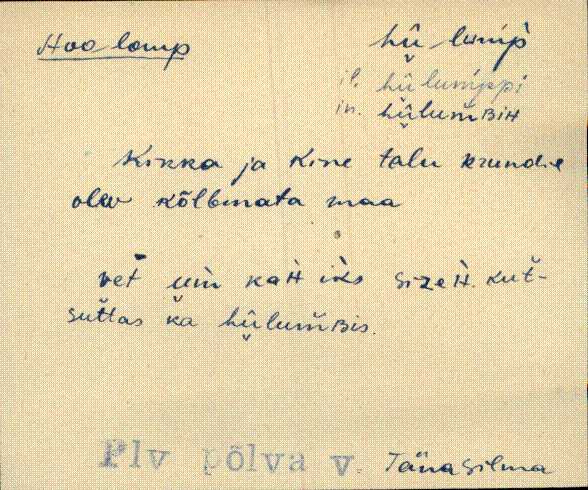 Hoo lomp
hü lump
il. hülumppi
in. hülumBiH
Kirka ja Kine talu krundil
olev kõlbmata maa
vet um kaH iks sizeH. kut-
suttas ka hülumBis.
Plv põlva v. Tännasilma